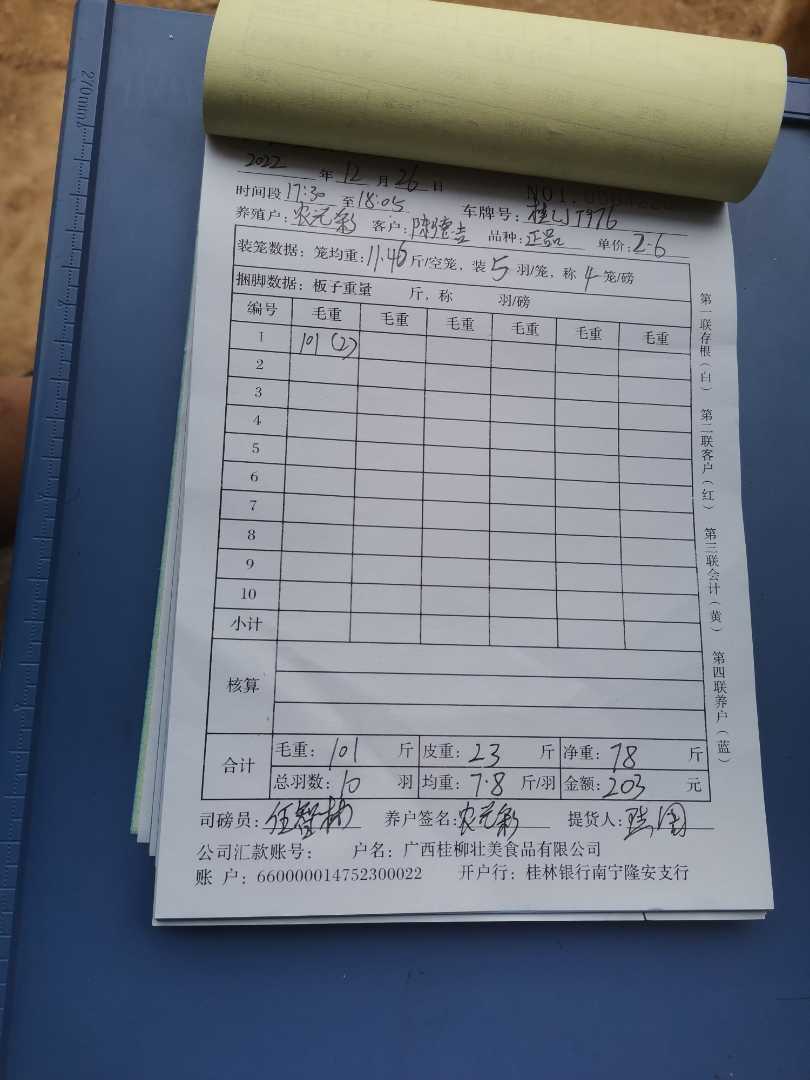 2022 年 12 月 26 日
时间段 17:30 至 18:05 车牌号:
养殖户: 农元彩 客户: 陈德 品种: 正品 单价: 2.6
装笼数据: 笼均重: 11.40 斤/空笼, 装 5 羽/笼, 称 4 笼/磅
捆脚数据: 板子重量 斤, 称 羽/磅
编号 毛重 毛重 毛重 毛重 毛重 毛重
1 101 (2)
2
3
4
5
6
7
8
9
10
小计
核算
合计 毛重: 101 斤 皮重: 23 斤 净重: 78 斤
总羽数: 10 羽 均重: 7.8 斤/羽 金额: 203 元
司磅员: 任智 养户签名: 农元彩 提货人:
公司汇款账号: 户名: 广西桂柳壮美食品有限公司
账 户: 660000014752300022 开户行: 桂林银行南宁隆安支行
第一联存根(白) 第二联客户(红) 第三联会计(黄) 第四联养户(蓝)
270mm